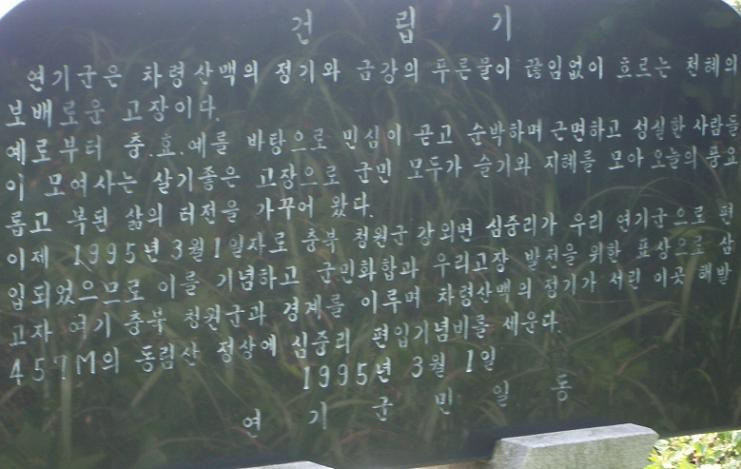 건립기
연기군은 차령산맥의 정기와 금강의 푸른물이 끊임없이 흐르는 천혜의
보배로운 고장이다.
예로부터 충.효.예를 바탕으로 민심이 곧고 순박하며 근면하고 성실한 사람들
이 모여사는 살기좋은 고장으로 군민 모두가 슬기와 지혜를 모아 오늘의 풍요
롭고 복된 삶의 터전을 가꾸어 왔다.
이제 1995년 3월 1일자로 충북 청원군 강외면 심중리가 우리 연기군으로 편
입되었으므로 이를 기념하고 군민화합과 우리고장 발전을 위한 표상으로 삼
고자 여기 충북 청원군과 경계를 이루며 차령산맥의 정기가 서린 이곳 해발
457M의 동림산 정상에 심중리 편입기념비를 세운다.
1995년 3월 1일
연기군민일동